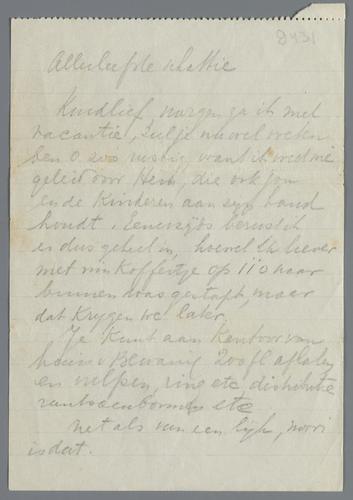 8431
Allerliefste schattie
Kindlief, morgen ga ik met
vacantie, zul je nu wel weten
ben o zoo rustig, want ik word nie
geleid door Hem, die ook jou
en de kinderen aan zyn hand
houdt. Eenerzijds berust ik
er dus geheel in, hoewel ik liever
met mn koffertje op 110 naar
binnen was gestapt, maar
dat krygen we later.
Je kunt aan kantoor van
huis v Bewaring 200 fl afhalen
en vulpen, ring etc distributie
rantsoenbonnen etc
net als van een lijk, mooi
is dat.